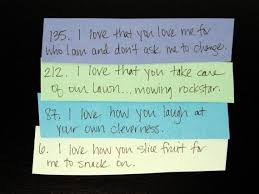 135. I love that you love me for
who I am and don't ask me to change.
212. I love that you take care
of our lawn... mowing rockstar.
87. I love how you laugh at
your own cleverness.
6. I love how you slice fruit for
me to snack on.